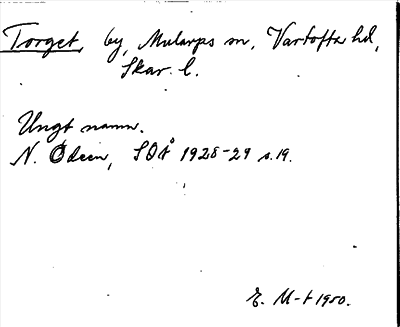 Torget, by, Mularps sn, Vartofta hd,
Skar. l.
Ungt namn.
N. Ödeen, SOÅ 1928-29 s. 19.
E. M-t 1950.